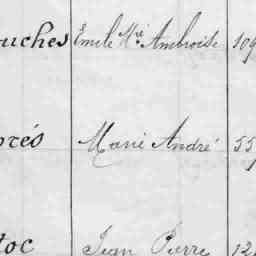 ouches Emile Mie Ambroise 109
ortés Marie André 55
loc Jean Pierre 12